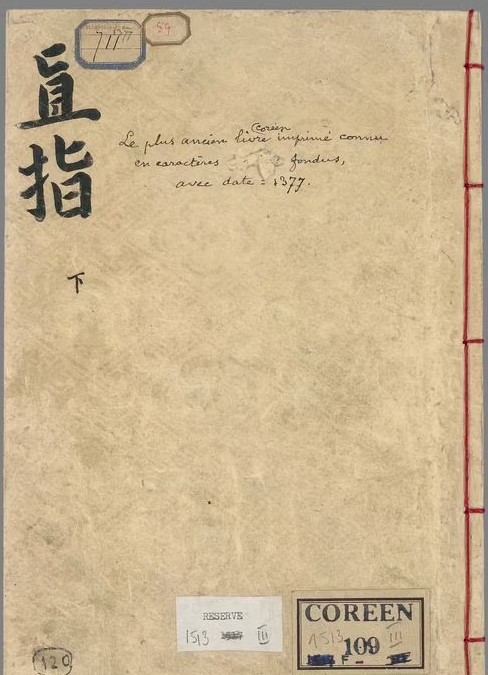 直指
下
7177
59
Coréen
Le plus ancien livre imprimé connu
en caractères fondus,
avec date = 1377.
RESERVE
1513 III
COREEN
1513 III
109
F
120